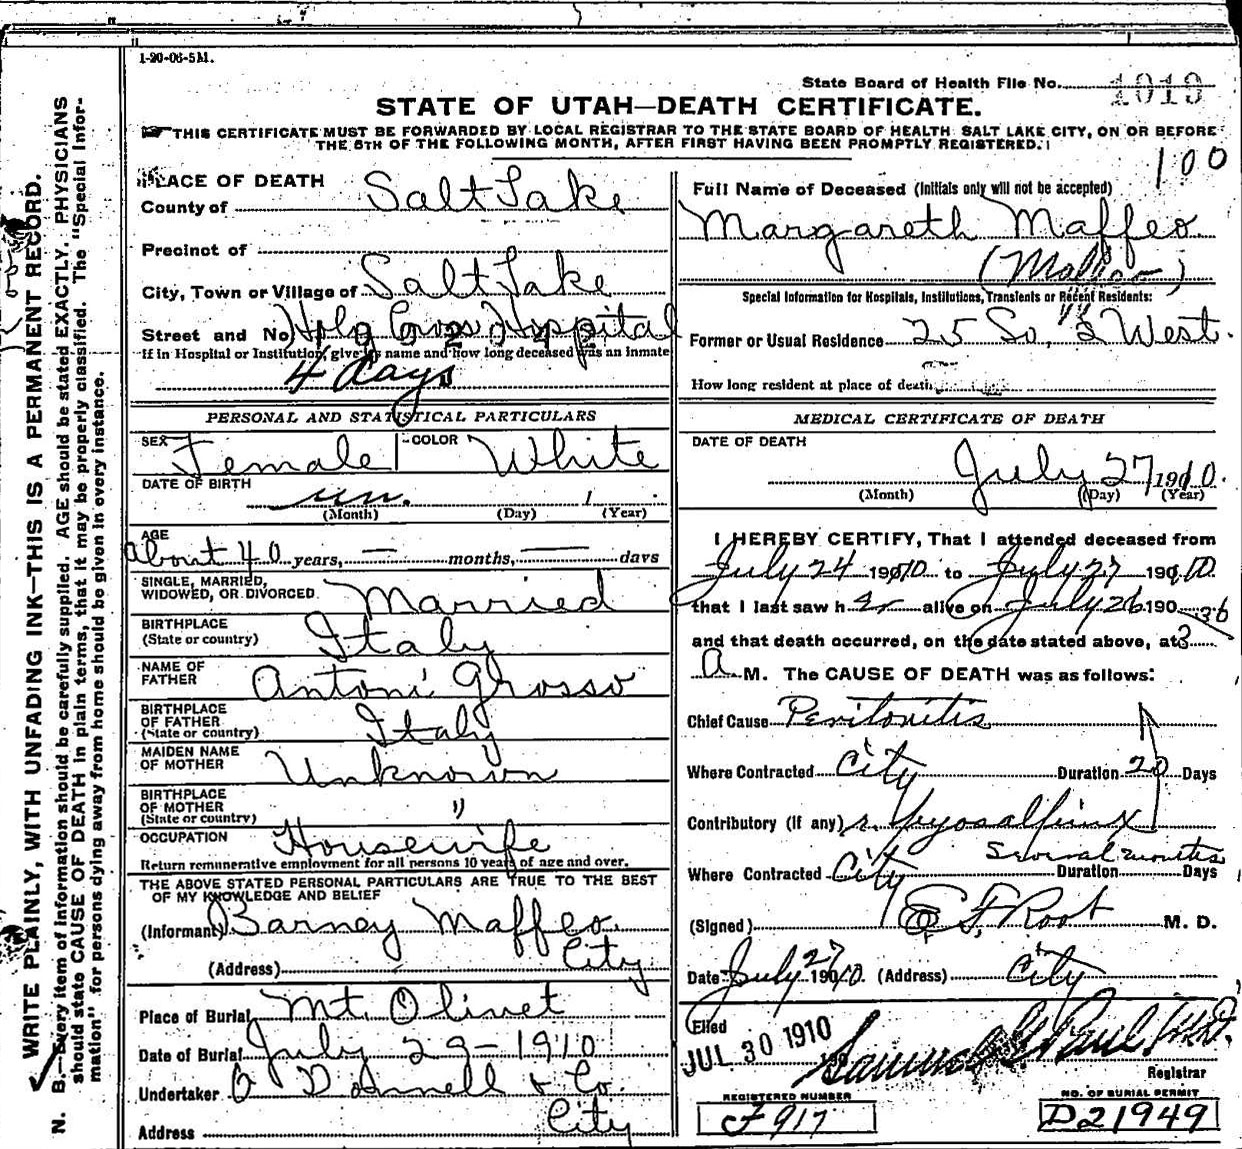 1-20-06-5M.
State Board of Health File No. 1019
STATE OF UTAH—DEATH CERTIFICATE.
THIS CERTIFICATE MUST BE FORWARDED BY LOCAL REGISTRAR TO THE STATE BOARD OF HEALTH SALT LAKE CITY, ON OR BEFORE
THE 5TH OF THE FOLLOWING MONTH, AFTER FIRST HAVING BEEN PROMPTLY REGISTERED.
100
PLACE OF DEATH
County of Salt Lake
Precinct of
City, Town or Village of Salt Lake
Street and No. Holy Cross Hospital
If in Hospital or Institution, give its name and how long deceased was an inmate
4 days
Full Name of Deceased (Initials only will not be accepted)
Margareth Maffeo
Special Information for Hospitals, Institutions, Transients or Recent Residents:
Former or Usual Residence 25 So, 2 West.
How long resident at place of death
PERSONAL AND STATISTICAL PARTICULARS
SEX Female COLOR White
DATE OF BIRTH un. 1
(Month) (Day) (Year)
AGE
About 40 years, — months, — days
SINGLE, MARRIED,
WIDOWED, OR DIVORCED Married
BIRTHPLACE
(State or country) Italy
NAME OF
FATHER Antoni Grosso
BIRTHPLACE
OF FATHER
(State or country) Italy
MAIDEN NAME
OF MOTHER Unknown
BIRTHPLACE
OF MOTHER
(State or country) "
OCCUPATION Housewife
Return remunerative employment for all persons 10 years of age and over.
THE ABOVE STATED PERSONAL PARTICULARS ARE TRUE TO THE BEST
OF MY KNOWLEDGE AND BELIEF
(Informant) Barney Maffeo
(Address) City
Place of Burial Mt. Olivet
Date of Burial July 29-1910
Undertaker O Donnell & Co.
Address City
MEDICAL CERTIFICATE OF DEATH
DATE OF DEATH
July 27 1910.
(Month) (Day) (Year)
I HEREBY CERTIFY, That I attended deceased from
July 24 1910 to July 27 1910
that I last saw her alive on July 26 190
and that death occurred, on the date stated above, at 3 30
A M. The CAUSE OF DEATH was as follows:
Chief Cause Peritonitis
Where Contracted City Duration 20 Days
Contributory (if any) r. Pyosalpinx
several months
Where Contracted City Duration Days
(Signed) E F. Root M. D.
Date July 27 1910. (Address) City
Filed
JUL 30 1910 Samuel G Paul, M.D.
Registrar
REGISTERED NUMBER
F 917
NO. OF BURIAL PERMIT
D21949
WRITE PLAINLY, WITH UNFADING INK—THIS IS A PERMANENT RECORD.
N. B.—Every item of information should be carefully supplied. AGE should be stated EXACTLY. PHYSICIANS
should state CAUSE OF DEATH in plain terms, that it may be properly classified. The "Special Infor-
mation" for persons dying away from home should be given in every instance.